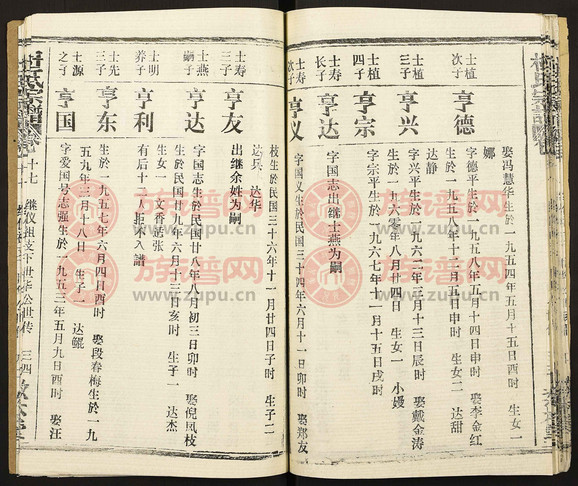 娶冯慧华生於一九五四年五月十五日酉时 生女一
娜
士植
次子
亨德
字德平生於一九五八年五月十四日申时 娶李金红
生於一九五八年十二月五日申时 生女二 达甜
达静
士植
三子
亨兴
字兴平生於一九六二年十月十三日辰时 娶戴金涛
生於一九六零年八月廿四日 生女一 小嫚
士植
四子
亨宗
字宗平生於一九六七年十一月十五日戌时
士寿
长子
亨达
字国志出继士燕为嗣
士寿
次子
亨义
字国义生於民国三十四年六月十一日卯时 娶郑友
枝生於民国三十六年十一月廿四日子时 生子二
达兵 达华
士寿
三子
亨友
出继余姓为嗣
士燕
嗣子
亨达
字国志生於民国廿八年八月初三日卯时 娶倪凤枝
生於民国廿九年六月十三日亥时 生子一 达杰
生女一 文香适张
士明
养子
亨利
有后十二人拒不入谱
士先
三子
亨东
生於一九五七年六月四日酉时 娶段春梅生於一九
五九年三月十八日 生子一 达鲲
士源
之子
亨国
字爱国号志强生於一九五三年五月九日酉时 娶汪
十七 继仪祖支下世华公世传 三四
族谱网
www.zupu.cn
族谱网
www.zupu.cn